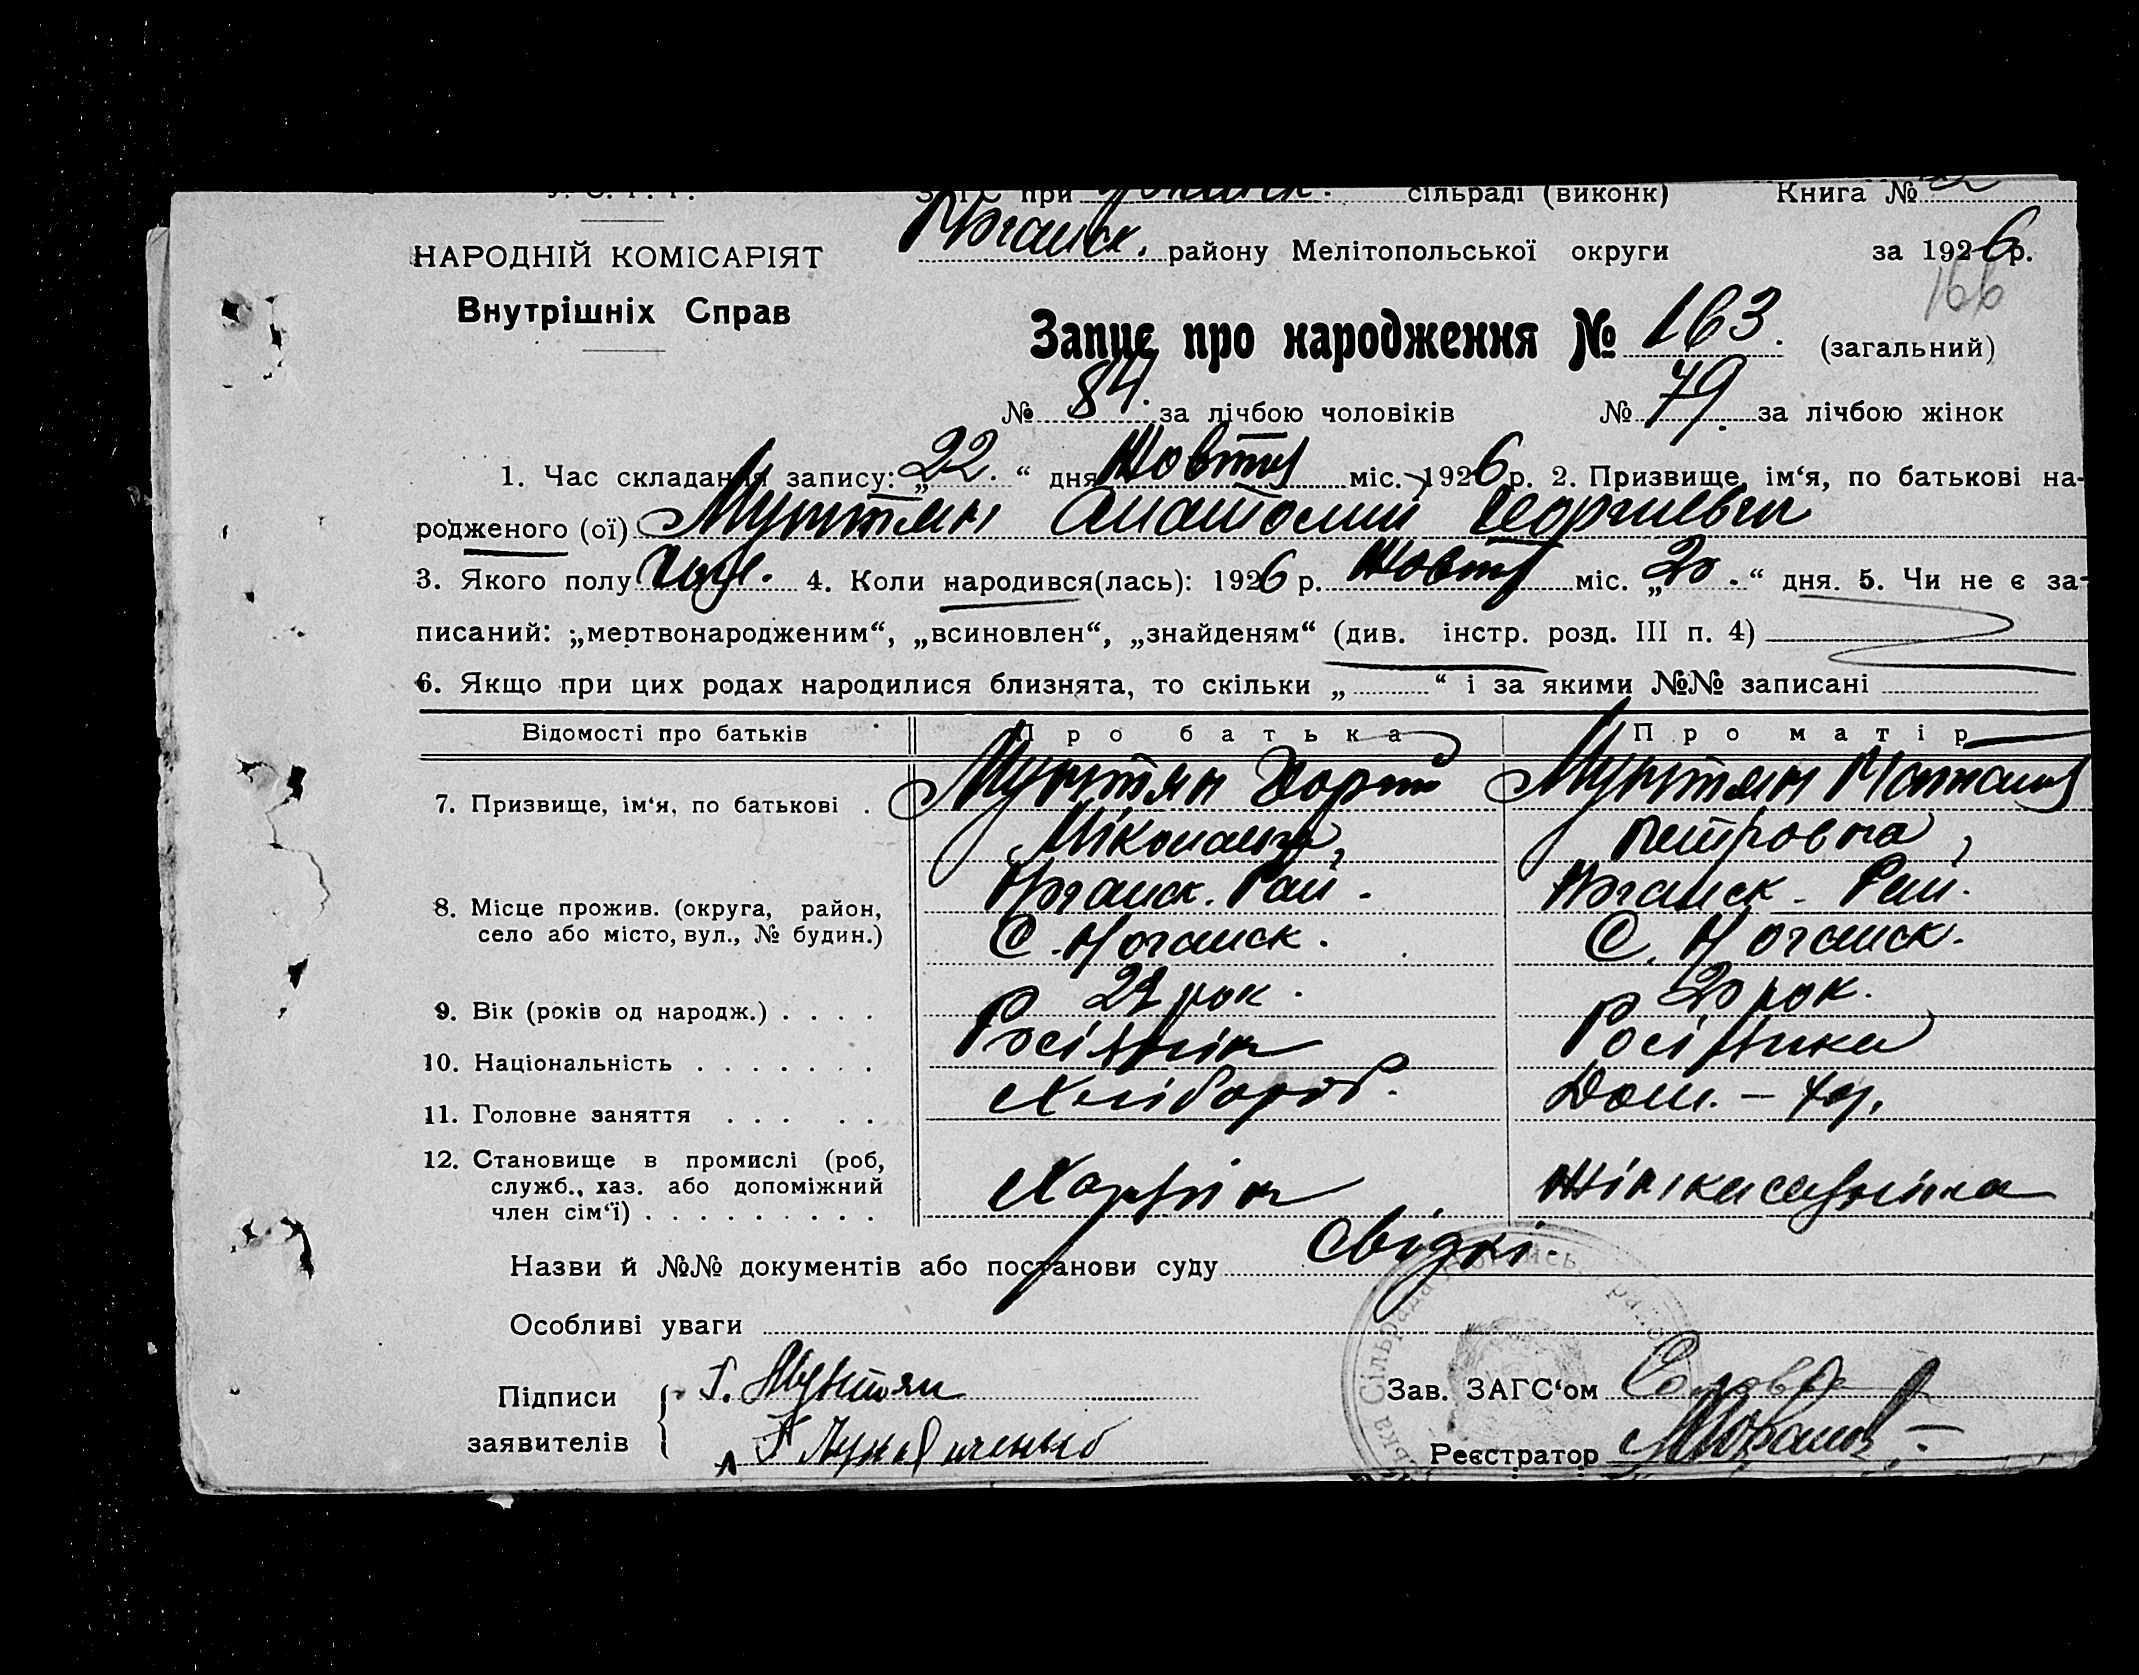 ЗАГС при сільраді (виконк) Книга №
Ногайск. району Мелітопольської округи за 1926 р.
НАРОДНІЙ КОМІСАРІЯТ
166
Внутрішніх Справ
Запис про народження № 163. (загальний)
№ 84. за лічбою чоловіків № 79. за лічбою жінок
1. Час складання запису: „22.“ дня Жовтн міс. 1926 р. 2. Призвище, ім‘я, по батькові на-
родженого (ої) Мунтян Анатолий Георгиевич
3. Якого полу 4. Коли народився(лась): 1926 р. Жовтн міс. „20.“ дня. 5. Чи не є за-
писаний: „мертвонародженим“, „всиновлен“, „знайденям“ (див. інстр. розд. III п. 4)
6. Якщо при цих родах народилися близнята, то скільки „ “ і за якими №№ записані
Відомості про батьків Про батька Про матір
7. Призвище, ім‘я, по батькові . Мунтян Мунтян
Петровна,
8. Місце прожив. (округа, район, Ногайск. Рай. Ногайск. Рай.
село або місто, вул., № будин.) С. Ногайск. С. Ногайск.
9. Вік (років од народж.) . . . . рок. 20 рок.
10. Національність . . . . . . .
11. Головне заняття . . . . . Хлібороб. Дом. —
12. Становище в промислі (роб,
служб., хаз. або допоміжний
член сім‘ї) . . . . . . . . .
Назви й №№ документів або постанови суду Свідкі.
Особливі уваги
Підписи Г. Мунтян Зав. ЗАГС‘ом
заявителів Реєстратор